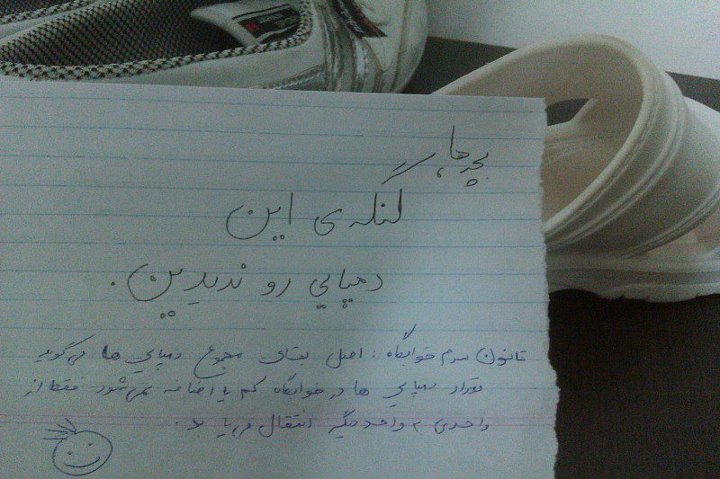 بچه ها،
لنگه ی این
دمپایی رو ندیدین.
قانون سوم خوابگاه: اصل بقای مجموع دمپایی ها می‌گوید
تعداد دمپایی ها در خوابگاه کم یا اضافه نمی‌شود فقط از
واحدی به واحد دیگر انتقال می یابد.